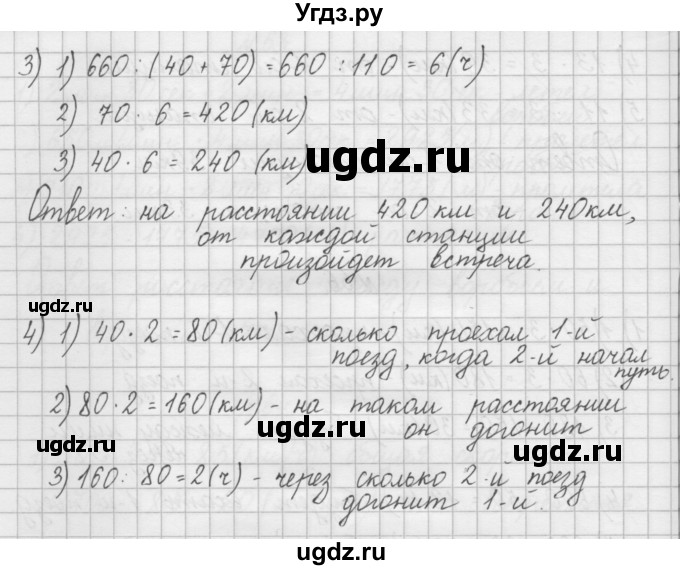 Угдз.ру
3) 1) 660 : (40 + 70) = 660 : 110 = 6 (ч)
2) 70 · 6 = 420 (км)
3) 40 · 6 = 240 (км)
ugdz.ru
Ответ: на расстоянии 420 км и 240 км,
от каждой станции
произойдет встреча.
ugdz.ru
ugdz.ru
4) 1) 40 · 2 = 80 (км) - сколько проехал 1-й
поезд, когда 2-й начал
путь.
2) 80 · 2 = 160 (км) - на таком расстоянии
он догонит
ugdz.ru
ugdz.ru
ugdz.ru
3) 160 : 80 = 2 (ч) - через сколько 2-й поезд
догонит 1-й.
ugdz.ru
ugdz.ru